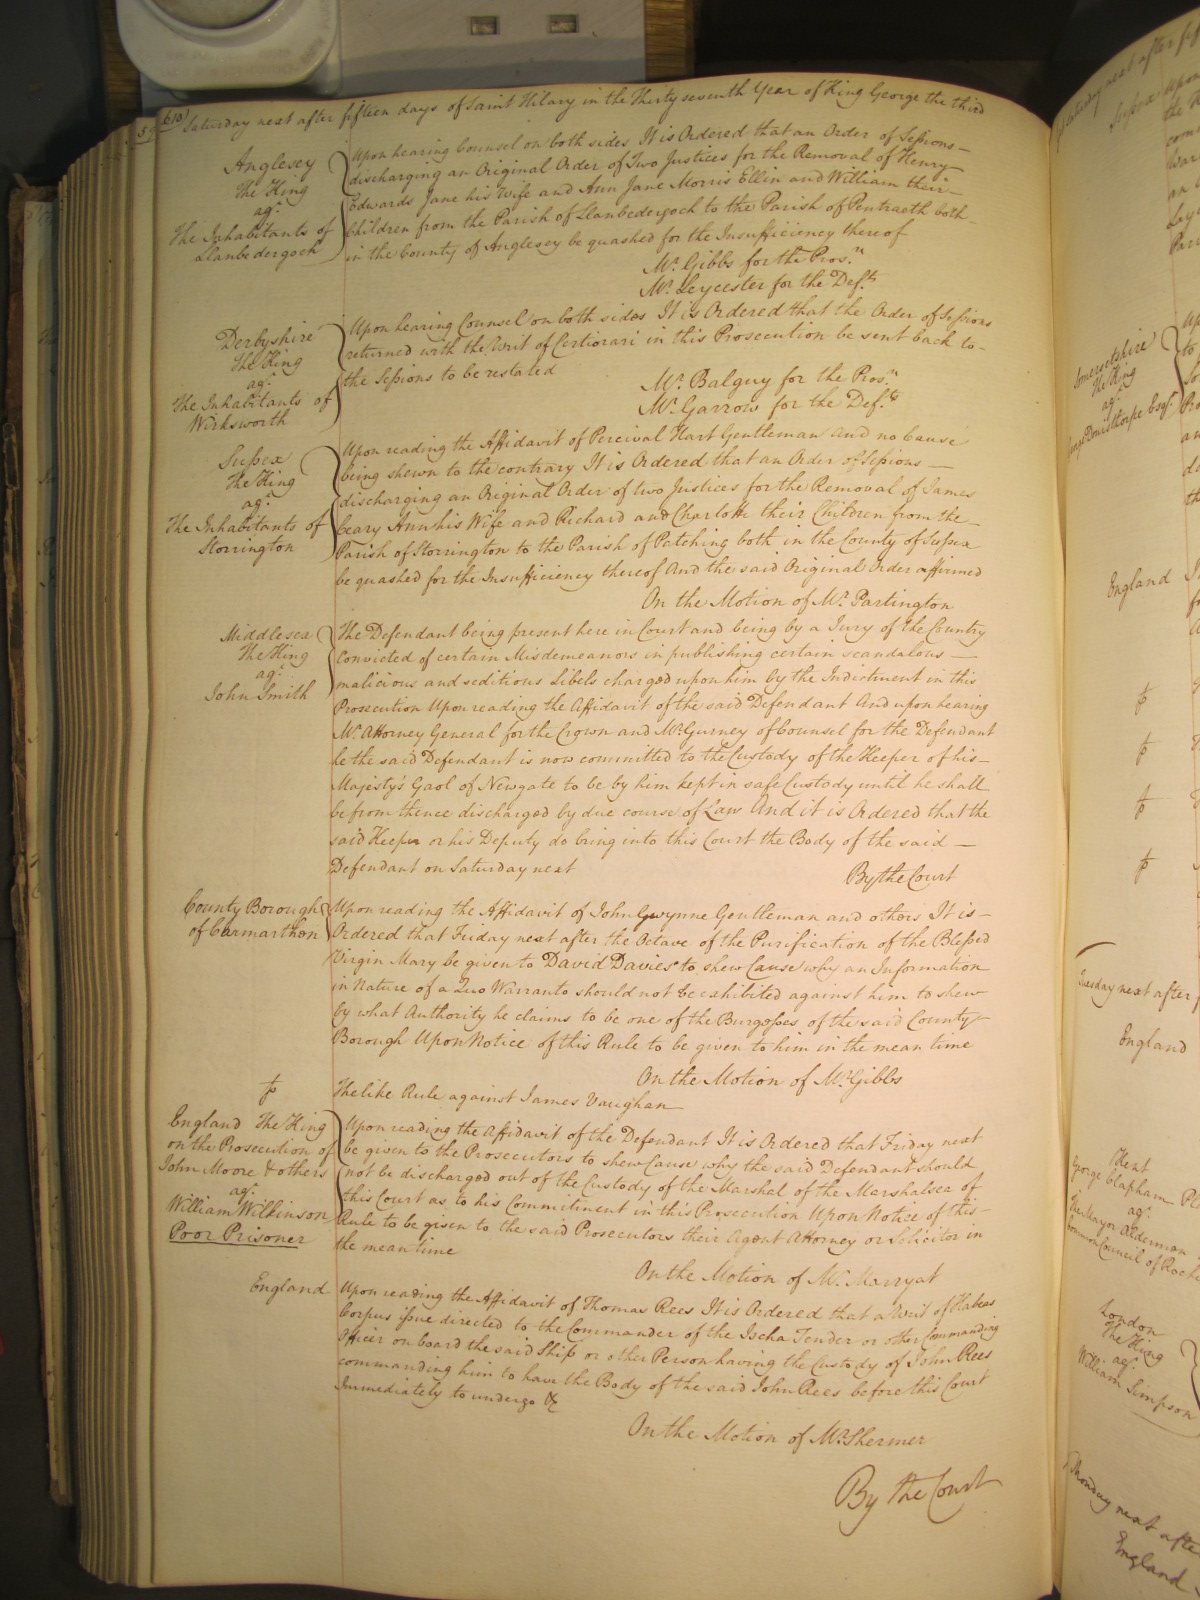 610
Saturday next after fifteen days of Saint Hilary in the Thirty seventh Year of King George the third
Anglesey
The King
agt
The Inhabitants of
Llanbedergoch
Upon hearing Counsel on both sides It is Ordered that an Order of Sessions
discharging an Original Order of Two Justices for the Removal of Henry
Edwards Jane his Wife and Ann Jane Morris Ellin and William their
Children from the Parish of Llanbedergoch to the Parish of Pentraeth both
in the County of Anglesey be quashed for the Insufficiency thereof
Mr. Gibbs for the Prosn.
Mr. Leycester for the Deft.
Derbyshire
The King
agt
The Inhabitants of
Wirksworth
Upon hearing Counsel on both sides It is Ordered that the Order of Sessions
returned with the Writ of Certiorari in this Prosecution be sent back to
the Sessions to be restated
Mr. Balguy for the Prosn.
Mr. Garrow for the Deft.
Sussex
The King
agt
The Inhabitants of
Storrington
Upon reading the Affidavit of Percival Hart Gentleman and no Cause
being shewn to the contrary It is Ordered that an Order of Sessions
discharging an Original Order of two Justices for the Removal of James
Ceary Ann his Wife and Richard and Charlotte their Children from the
Parish of Storrington to the Parish of Patching both in the County of Sussex
be quashed for the Insufficiency thereof And the said Original Order affirmed
On the Motion of Mr. Partington
Middlesex
The King
agt
John Smith
The Defendant being present here in Court and being by a Jury of the Country
Convicted of certain Misdemeanors in publishing certain scandalous
malicious and seditious Libels charged upon him by the Indictment in this
Prosecution Upon reading the Affidavit of the said Defendant And upon hearing
Mr. Attorney General for the Crown and Mr. Gurney of Counsel for the Defendant
he the said Defendant is now committed to the Custody of the Keeper of his
Majesty's Gaol of Newgate to be by him kept in safe Custody until he shall
be from thence discharged by due course of Law And it is Ordered that the
said Keeper or his Deputy do bring into this Court the Body of the said
Defendant on Saturday next
By the Court
County Borough
of Carmarthen
Upon reading the Affidavit of John Gwynne Gentleman and others It is
Ordered that Friday next after the Octave of the Purification of the Blessed
Virgin Mary be given to David Davies to shew Cause why an Information
in Nature of a Quo Warranto should not be exhibited against him to shew
by what Authority he claims to be one of the Burgesses of the said County
Borough Upon Notice of this Rule to be given to him in the mean time
On the Motion of Mr. Gibbs
The like Rule against James Vaughan
England The King
on the Prosecution of
John Moore & others
agt
William Wilkinson
Poor Prisoner
Upon reading the Affidavit of the Defendant It is Ordered that Friday next
be given to the Prosecutors to shew Cause why the said Defendant should
not be discharged out of the Custody of the Marshal of the Marshalsea of
this Court as to his Commitment in this Prosecution Upon Notice of this
Rule to be given to the said Prosecutors their Agent Attorney or Solicitor in
the mean time
On the Motion of Mr. Marryat
England
Upon reading the Affidavit of Thomas Rees It is Ordered that a Writ of Habeas
Corpus issue directed to the Commander of the Ischa Tender or other Commanding
Officer on board the said Ship or other Person having the Custody of John Rees
commanding him to have the Body of the said John Rees before this Court
Immediately to undergo &c
On the Motion of Mr. Shermer
By the Court
Saturday next after
Sussex
Somersetshire
The King
agt
Donisthorpe Esqr.
England
Tuesday next after
England
Kent
George Clapham
agt
The Mayor Alderman
Common Council of
London
The King
agt
William Simpson
Monday next after
England